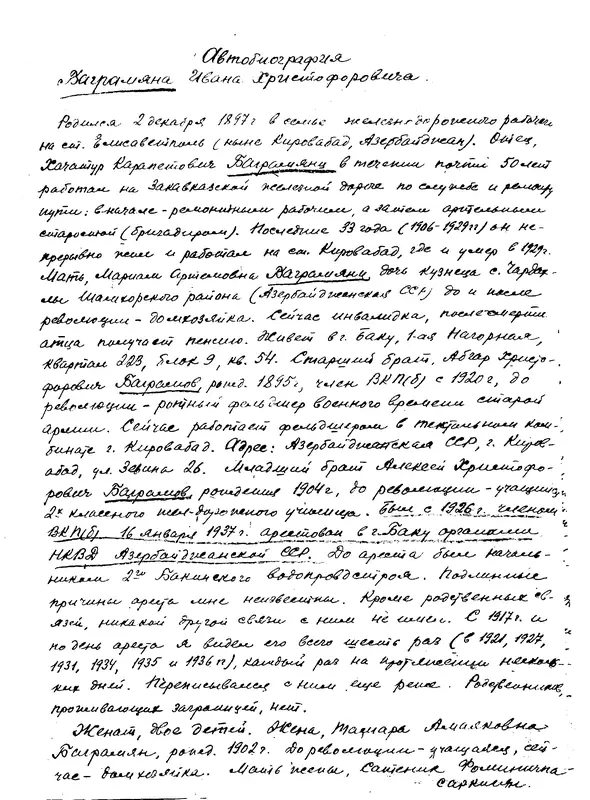 Автобиография
Баграмяна Ивана Христофоровича.
Родился 2 декабря 1897г в семье железнодорожного рабочего
на ст. Елисаветполь (ныне Кировабад, Азербайджан). Отец,
Хачатур Карапетович Баграмянц в течении почти 50 лет
работал на Закавказской железной дороге по службе и ремонту
пути: вначале - ремонтным рабочим, а затем артельным
старостой (бригадиром). Последние 33 года (1906-1929гг) он не-
прерывно жил и работал на ст. Кировабад, где и умер в 1929г.
Мать, Мариам Артемовна Баграмянц, дочь кузнеца с. Чардах-
лы Шамхорского района (Азербайджанская ССР) до и после
революции - домхозяйка. Сейчас инвалидка, после смерти
отца получает пенсию. Живет в г. Баку, 1-ая Нагорная,
квартал 223, блок 9, кв. 54. Старший брат, Абгар Христо-
форович Баграмов, рожд. 1895г, член ВКП(б) с 1920г, до
революции - ротный фельдшер военного времени старой
армии. Сейчас работает фельдшером в текстильном ком-
бинате г. Кировабад. Адрес: Азербайджанская ССР, г. Киров-
абад, ул. Зевина 26. Младший брат Алексей Христофо-
рович Баграмов, рождения 1904г, до революции - учащийся
2х классного жел-дорожного училища. Был с 1926г. членом
ВКП(б). 16 января 1937г. арестован в г. Баку органами
НКВД Азербайджанской ССР. До ареста был началь-
ником 2го Бакинского водопроводстроя. Подлинные
причины ареста мне неизвестны. Кроме родственных св-
язей, никакой другой связи с ним не имел. С 1917г. и
по день ареста я видел его всего шесть раз (в 1921, 1927,
1931, 1934, 1935 и 1936 гг), каждый раз на протяжении несколь-
ких дней. Переписывался с ним еще реже. Родственников,
проживающих заграницей, нет.
Женат, двое детей. Жена, Тамара Амаяковна
Баграмян, рожд. 1902г. До революции - учащаяся, сей-
час - домхозяйка. Мать жены, Сатеник Фоминична